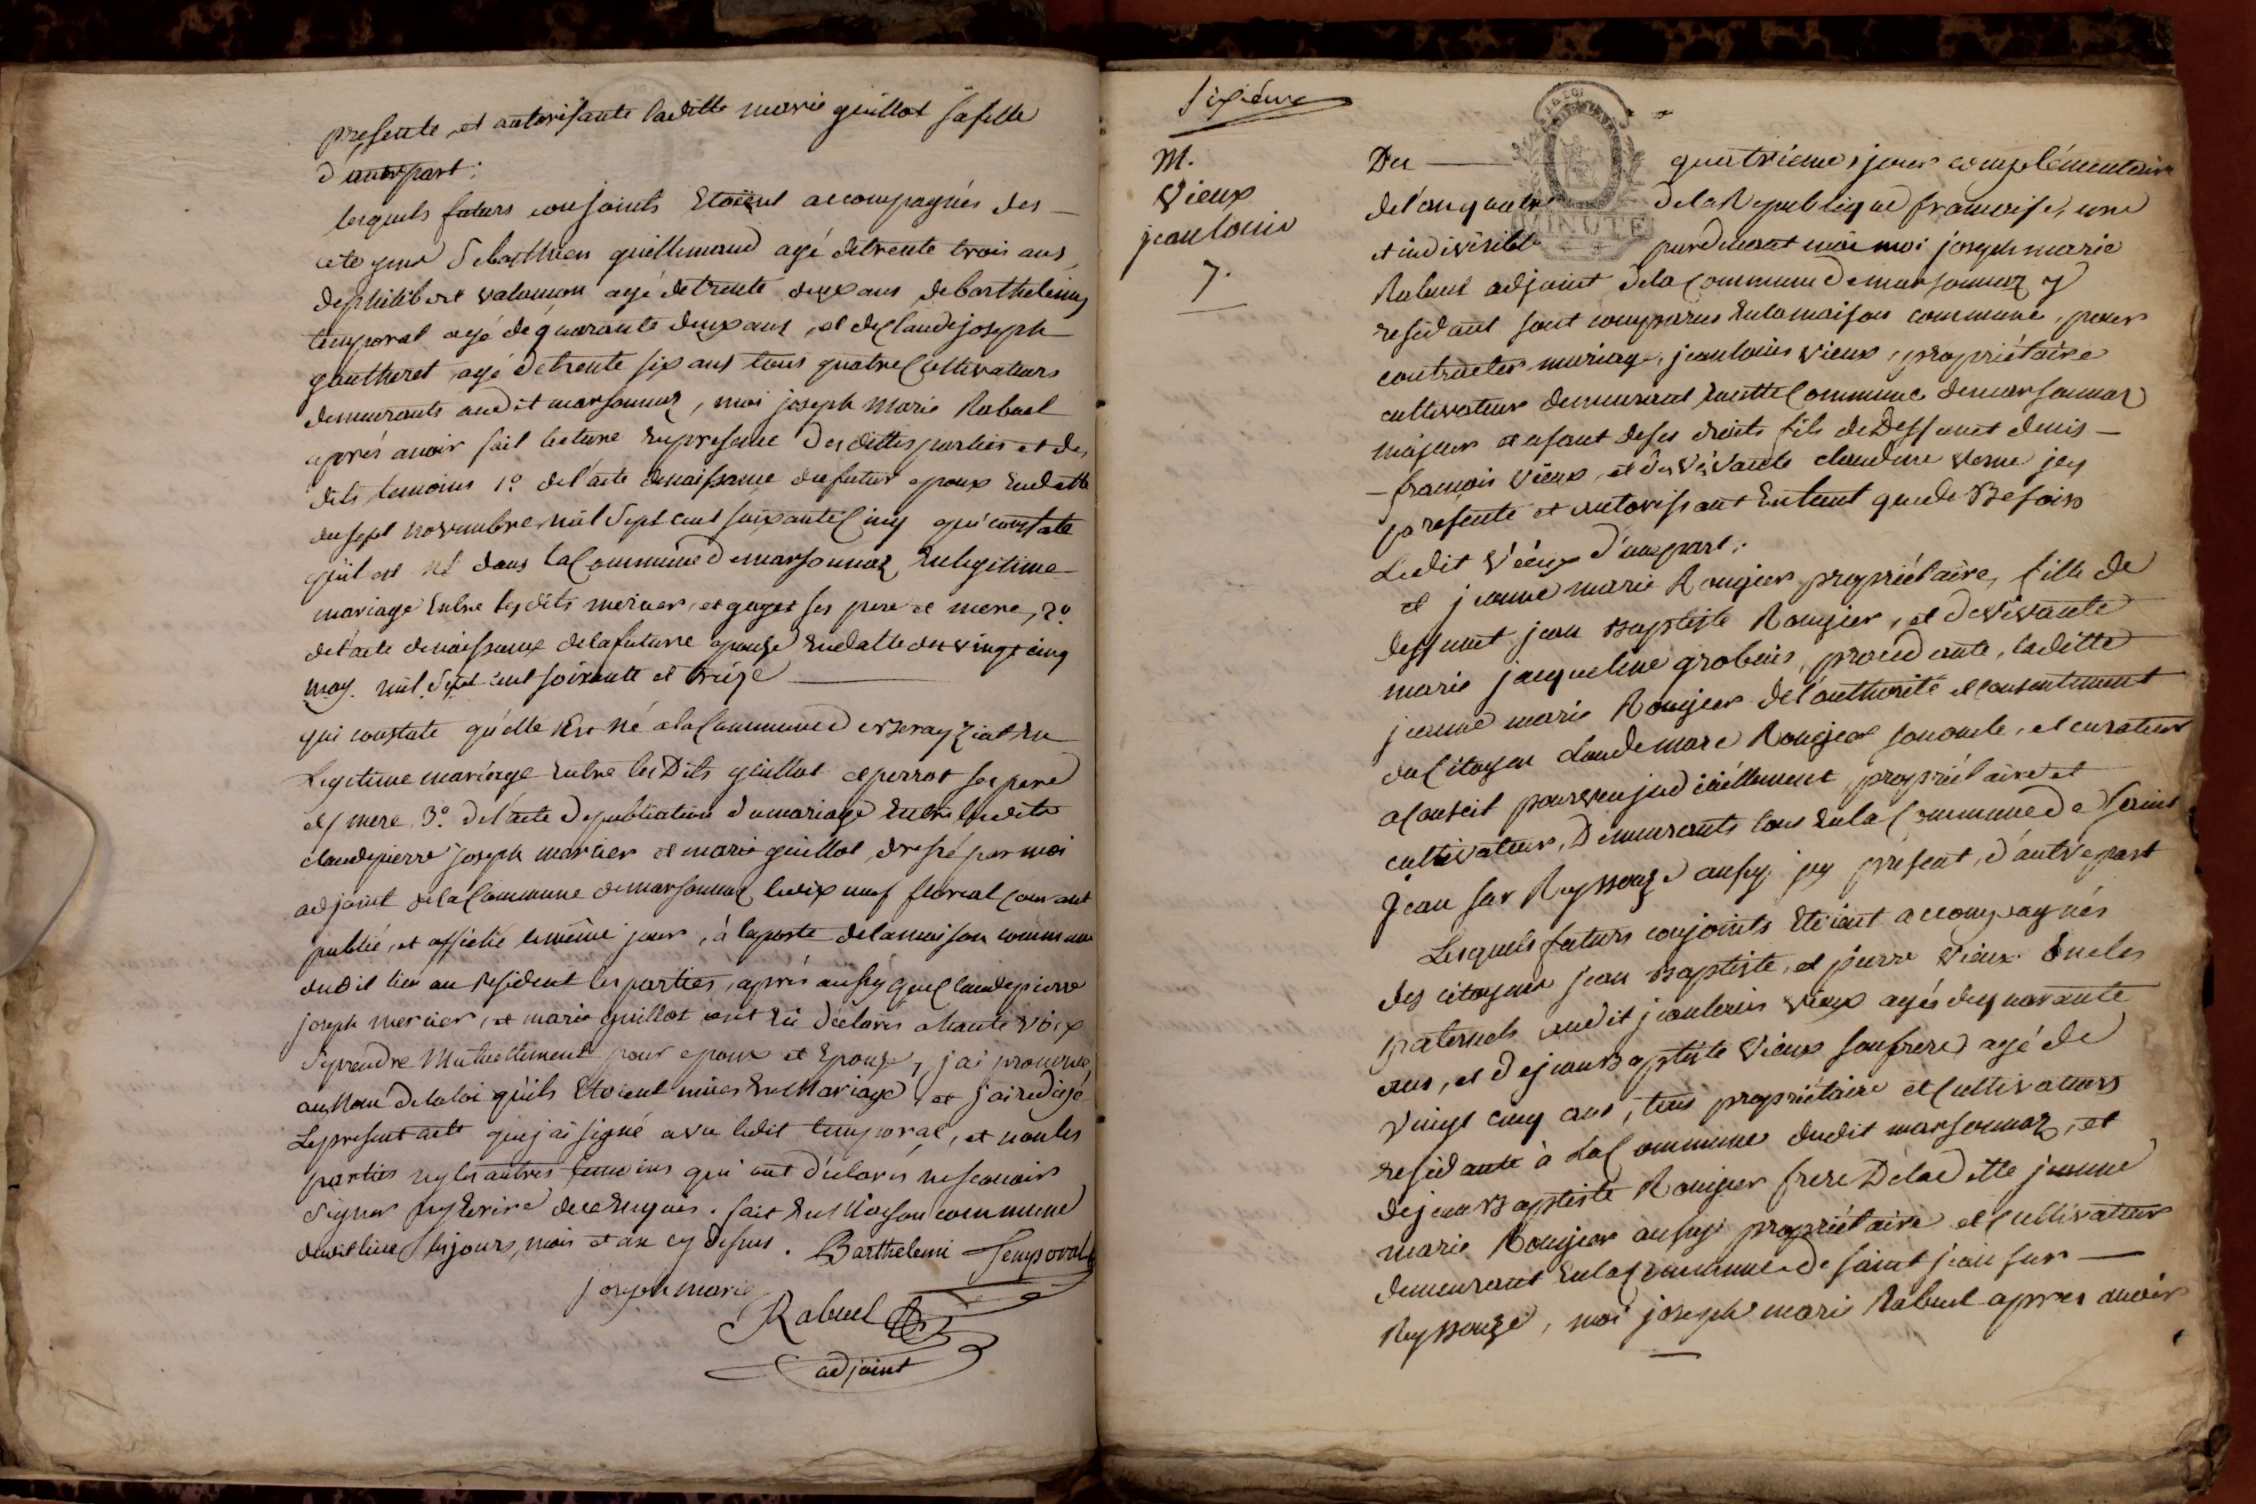 presente, et autorisante laditte marie guillot sa fille
d'autrepart;
lesquels futurs conjoints Etoient accompagnés des
citoyens Sebasthien guillemaud agé detrente trois ans,
dephilibert valamon agé detrente deux ans debarthelemy
temporal agé dequarante deux ans, et declaudejoseph
gautheret agé detrente six ans tous quatre Cultivateurs
demeurants audit marsonnaz, moi joseph Marie Rabuel
aprés avoir fait lecture Enpresence desdittes parties et des
dits temoins 1° del'acte denaissance dufutur epoux Endatte
du sept novembre mil Sept cent soixante Cinq qui constate
qu'il est né dans laCommune demarsonnaz Enlegitime
mariage Entre lesdits mercier, et gaget ses pere et mere, 2°
del'acte denaissance delafuture epouse Endatte du vingt cinq
may. mil. Sept cent soixante et treize
qui constate qu'elle Est né alaCommune deBerayziat En
Legitime mariage Entre lesDits guillot et perrot ses pere
et mere. 3°. del'acte depublication dumariage Entre lesdits
claudepierre joseph mercier et marie guillot, dressé par moi
adjoint delaCommune demarsonnaz ledix neuf floreal courant
publié, et affiché lemême jour, à laporte delamaison commune
dudit lieu ou resident lesparties, aprés aussy que Claudepierre
joseph mercier, et marie guillot ont Eû déclarés ahaute voix
Seprendre Mutuellement pour epoux et Epouse, j'ai prononcé
auNom delaloi qu'ils Etoient unies EnMariage, et j'airedigé
Lepresent acte quej'ai signé avec ledit temporal, et nonles
parties nyles autres temoins qui ont déclarés nesavoir
signer ny Ecrire deceEnquis. fait EnlMaison commune
dudit lieu lesjours, mois et an cy dessus. Barthelemi Temporal
joseph marie
Rabuel
adjoint
Sixiéme
M.
Vieux
jean louis
7.
Du quatrieme jour complémentaire
del'an quatre delaRepublique francoise, une
et indivisible pardevant moi joseph marie
MINUTE
Rabuel adjoint delaCommune demarsonnaz y
residant sont comparus Enlamaison commune, pour
contracter mariage, jeanlouis vieux, propriétaire
cultivateur demeurant Enditte Commune demarsonnaz
majeur et usant deses droits fils deDeffunct denis
francois vieux, et devivante claudine verne jcy
présente et autorissant Entant quede Besoin
Ledit vieux d'unepart;
et jeanne marie Rougier propriétaire, fille de
deffunct jean Baptiste Rougier, et devivante
marie jacqueline grobois, procedante, laditte
jeanne marie Rougier del'authorité et consentement
duCitoyen claudemarc Rougier sononcle, et curateur
aConseil pourveu judiciellement, propriétaire et
cultivateur, Demeurants tous EnlaCommune de Saint
Jean sur Reyssouze aussy jcy présent, d'autrepart
Lesquels futurs conjoints Etoient accompagnés
des citoyens jean Baptiste, et pierre vieux Oncles
paternels audit jeanlouis vieux agés dequarante
ans, et dejeanBaptiste vieux son frere agé de
vingt cinq ans, tous propriétaire et Cultivateurs
residants à LaCommune dudit marsonnaz, et
dejeanBaptiste Rougier frere Deladitte jeanne
marie Rougier aussy propriétaire et Cultivateur
demeurant EnlaCommune de saint jean sur
Reyssouze, moi joseph marie Rabuel apres avoir